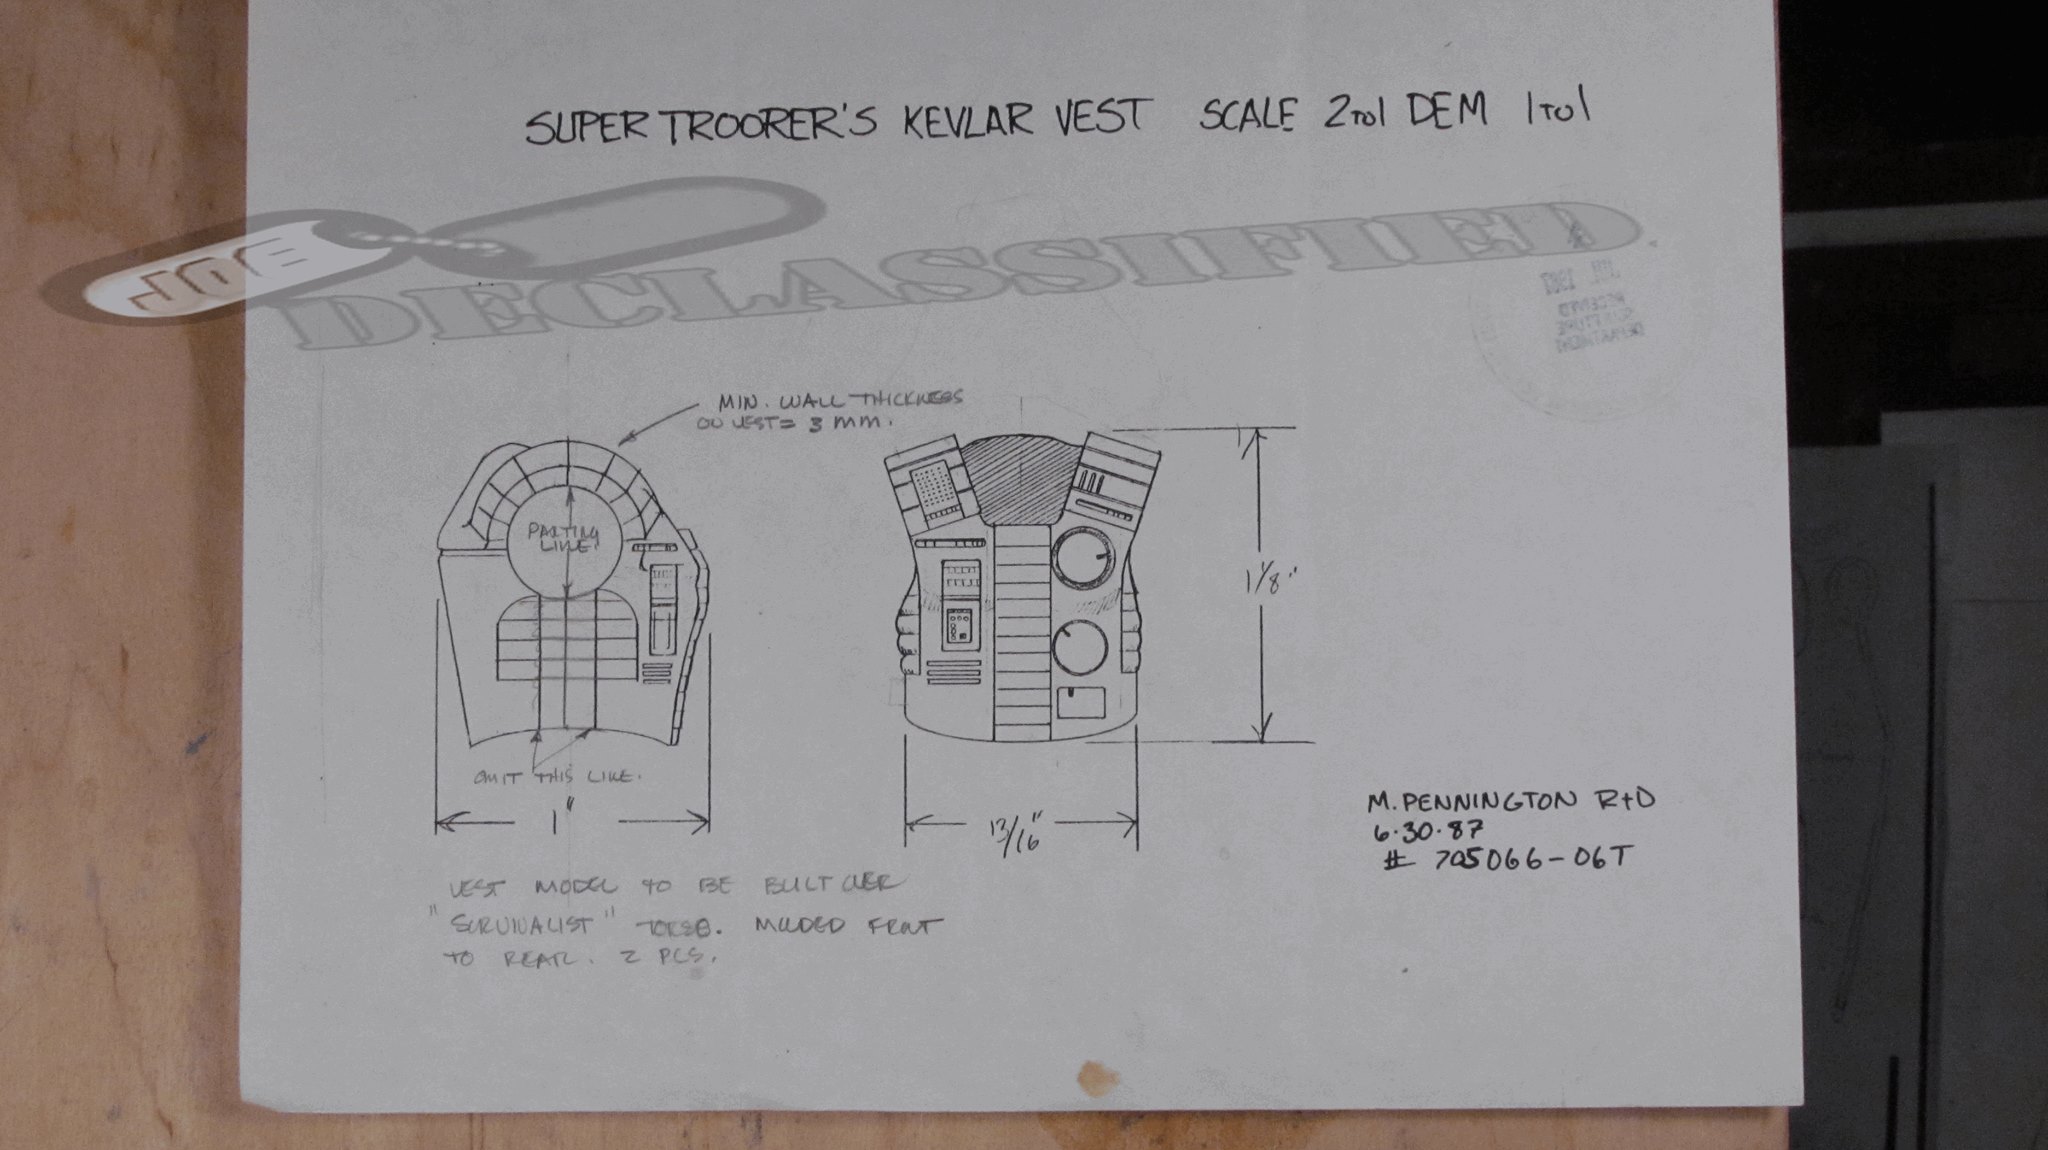 SUPER TROORER'S KEVLAR VEST SCALE 2 TO 1 DEM 1 TO 1
JOE
DECLASSIFIED
RECEIVED
SCULPTURE
DEPARTMENT
MIN. WALL THICKNESS
ON VEST = 3 MM.
PARTING
LINE
1 1/8"
OMIT THIS LINE.
1"
13/16"
M. PENNINGTON R+D
6.30.87
# 705066-06T
VEST MODEL TO BE BUILT OVER
"SURVIVALIST" TORSO. MOLDED FRONT
TO REAR. 2 PCS.